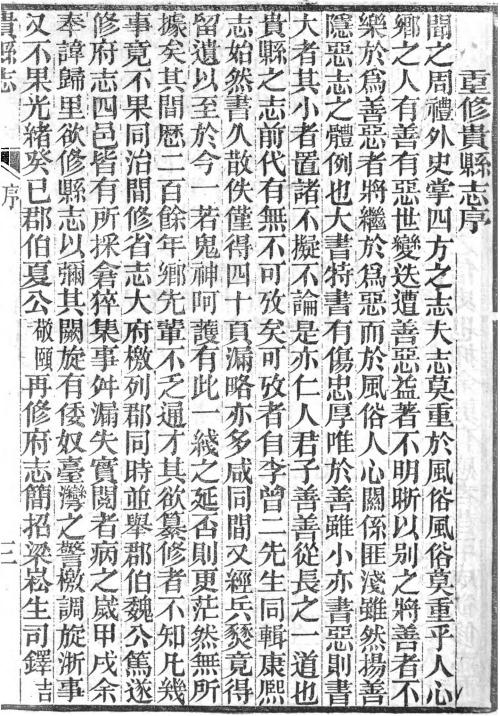 重修貴縣志序
聞之周禮外史掌四方之志夫志莫重於風俗風俗莫重乎人心
鄉之人有善有惡世變迭遭善惡益著不明晰以別之將善者不
樂於爲善惡者將繼於爲惡而於風俗人心關係匪淺雖然揚善
隱惡志之體例也大書特書有傷忠厚唯於善雖小亦書惡則書
大者其小者置諸不擬不論是亦仁人君子善善從長之一道也
貴縣之志前代有無不可攷矣可攷者自李曾二先生同輯康熙
志始然書久散佚僅得四十頁漏略亦多咸同間又經兵燹竟得
留遺以至於今一若鬼神呵護有此一綫之延否則更茫然無所
據矣其間歷二百餘年鄉先輩不乏通才其欲纂修者不知凡幾
事竟不果同治間修省志大府檄列郡同時並舉郡伯魏公篤遂
修府志四邑皆有所採倉猝集事舛漏失實閱者病之歲甲戌余
奉諱歸里欲修縣志以彌其闕旋有倭奴臺灣之警檄調旋浙事
又不果光緒癸巳郡伯夏公敬頤再修府志簡招梁崧生司鐸吉
貴縣志
序
三